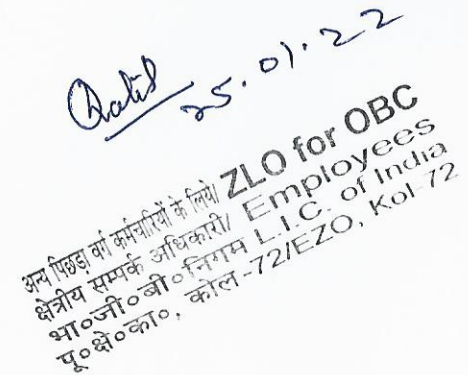 25.01.22
अन्य पिछड़ा वर्ग कर्मचारियों के लिये/ ZLO for OBC
क्षेत्रीय सम्पर्क अधिकारी/ Employees
भा०जी०बी०निगम L.I.C. of India
पू०क्षे०का०, कोल-72/EZO, Kol-72